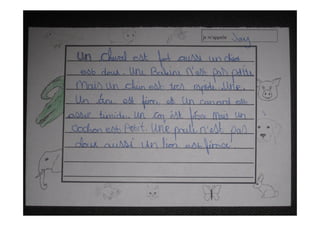 je m'appelle Jay
Un cheval est fort aussi un lion
est doux. Une Baleine n'est pas petite
Mais un chien est très rapide. Une
Un âne est fière et Un canard est
assez timide. Un coq est fière Mais un
cochon est Petit. Une poule n'est pas
doux aussi un lion est féroce